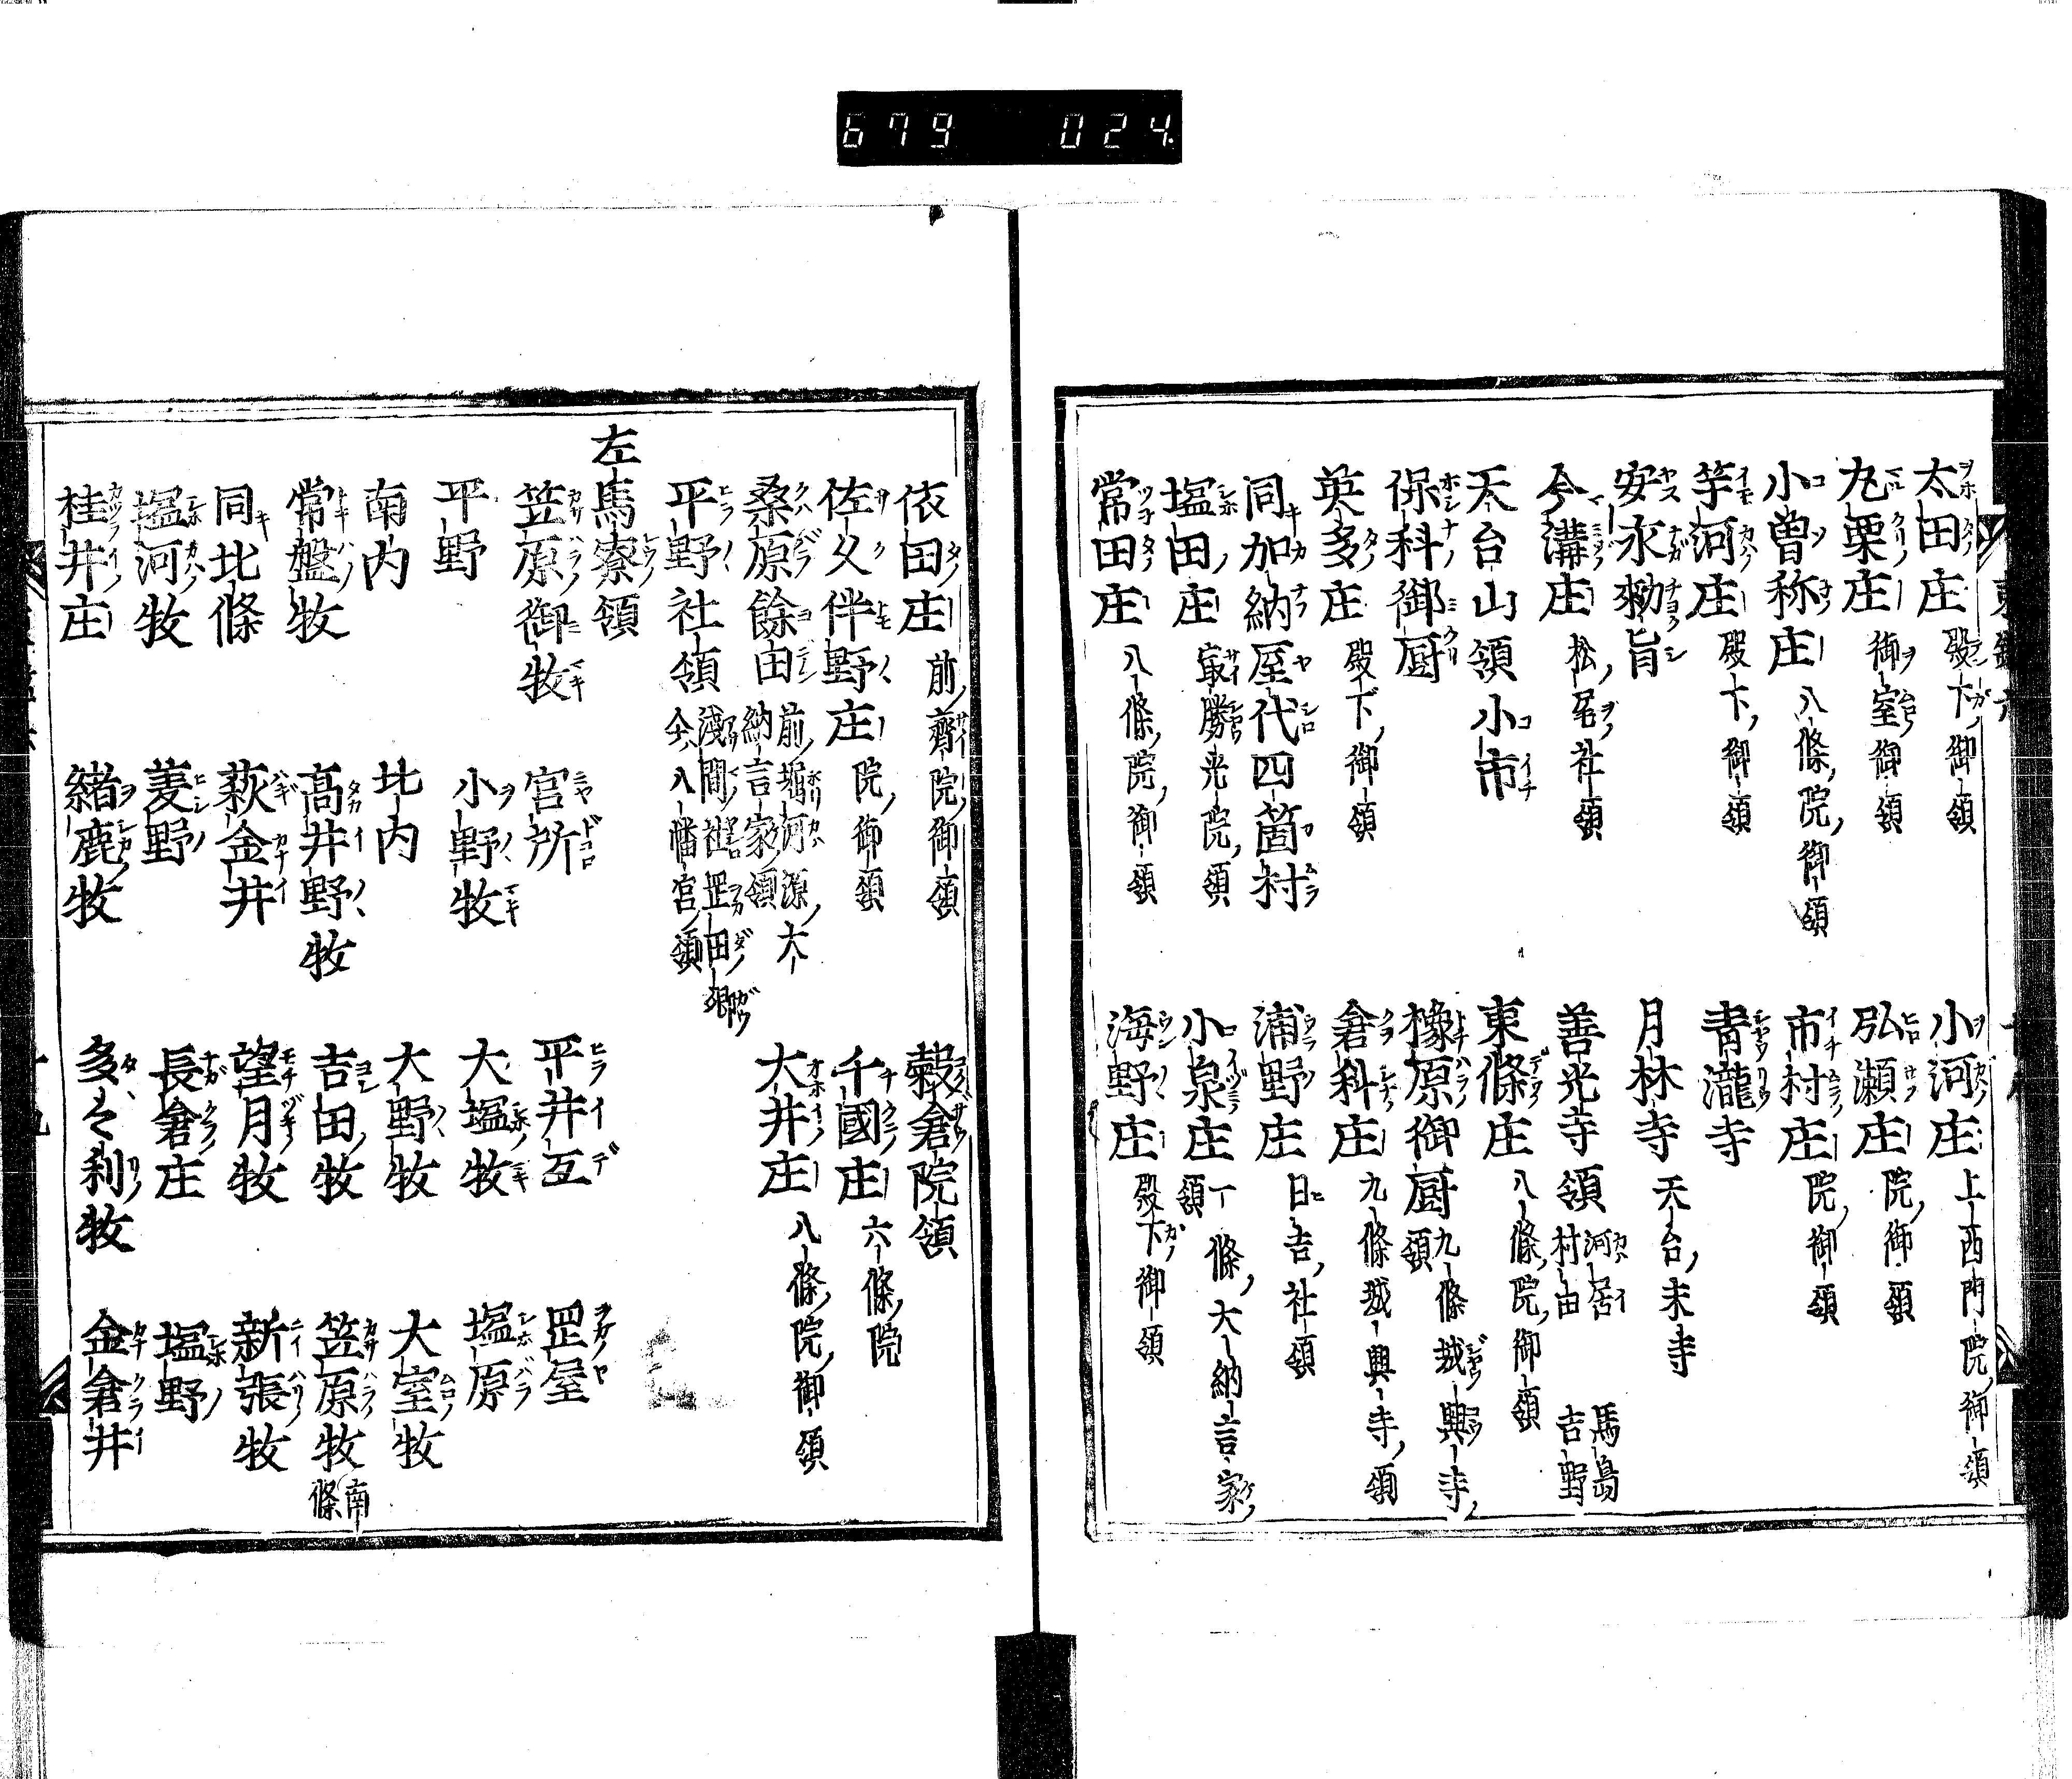 679 024
太田庄 殿下御領 小河庄 上西門院御領
丸栗庄 御室御領 弘瀬庄 院御領
小曽称庄 八條院御領 市村庄 院御領
芋河庄 殿下御領 青瀧寺
安永勅旨 月林寺 天台末寺
今溝庄 松尾社領 善光寺領 河居 馬島 村山 吉野
天台山領小市 東條庄 八條院御領
保科御厨 橡原御厨 九條城興寺領
英多庄 殿下御領 倉科庄 九條城興寺領
同加納屋代四箇村 浦野庄 日吉社領
塩田庄 最勝光院領 小泉庄 一條大納言家領
常田庄 八條院御領 海野庄 殿下御領
依田庄 前齋院御領 穀倉院領
佐久伴野庄 院御領 千國庄 六條院
桑原餘田 前堀河源大納言家領 大井庄 八條院御領
平野社領 浅間社 罡田郷 仝八幡宮領
左馬寮領
笠原御牧 宮所 平井弖 罡屋
平野 小野牧 大塩牧 塩原
南内 北内 大野牧 大室牧
常盤牧 高井野牧 吉田牧 笠原牧 南條
同北條 萩金井 望月牧 新張牧
塩河牧 菱野 長倉庄 塩野
桂井庄 緒鹿牧 多々利牧 金倉井